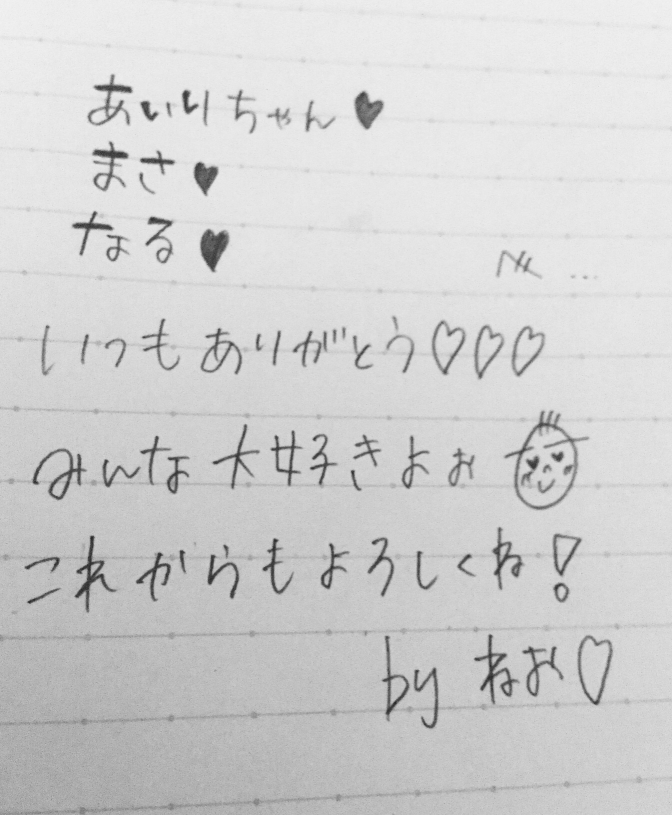 あいりちゃん♥
まさ♥
なる♥
いつもありがとう♡♡♡
みんな大好きよぉ
これからもよろしくね!
by ねお♡